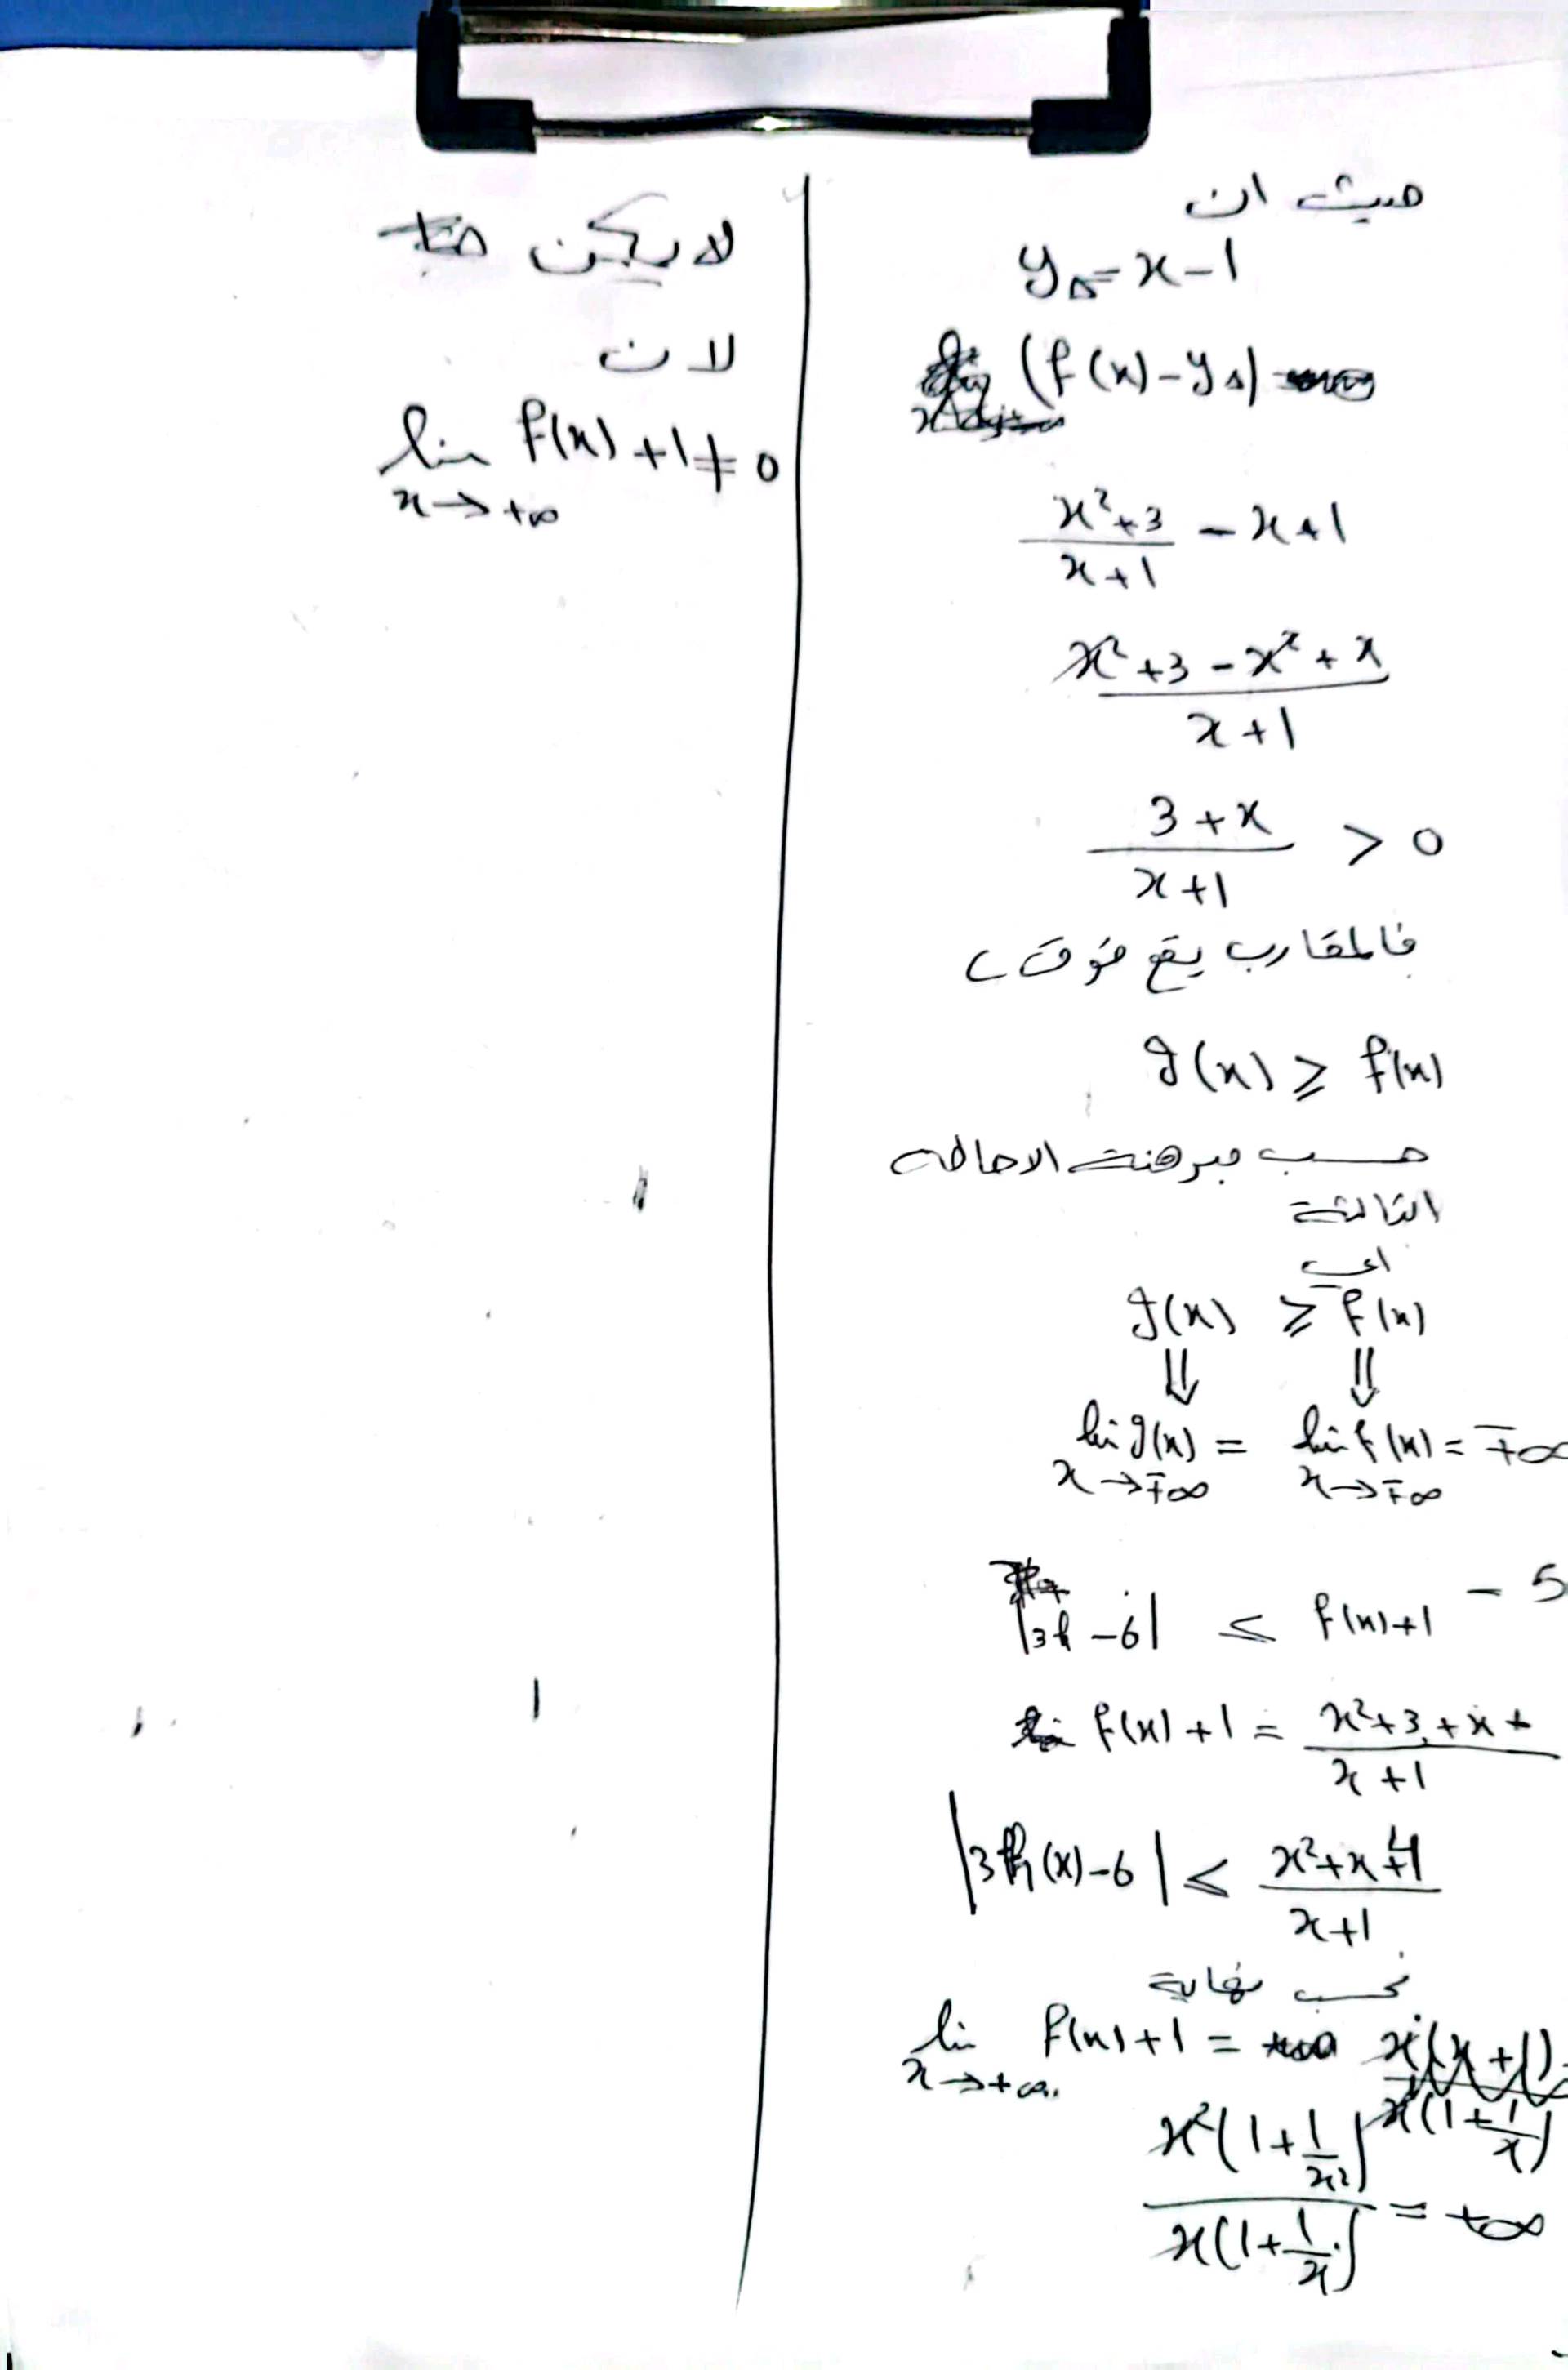 حيث ان
y_Δ = x - 1
(f(x) - y_Δ)
\frac{x² + 3}{x + 1} - x + 1
\frac{x² + 3 - x² + x}{x + 1}
\frac{3 + x}{x + 1} > 0
فالمقارب يقع فوق C
g(x) ≥ f(x)
حسب مبرهنة الاحاطة
الثالثة
اي
g(x) ≥ f(x)
⇓ ⇓
lim g(x) = lim f(x) = ∓∞
x→∓∞ x→∓∞
- 5
|3h - 6| ≤ f(x) + 1
f(x) + 1 = \frac{x² + 3 + x +}{x + 1}
|3h(x) - 6| ≤ \frac{x² + x + 4}{x + 1}
نحسب نهاية
lim f(x) + 1 =
x→+∞
\frac{x²(1 + \frac{1}{x²})}{x(1 + \frac{1}{x})} = +∞
لا يمكن
لان
lim f(x) + 1 ≠ 0
x→+∞